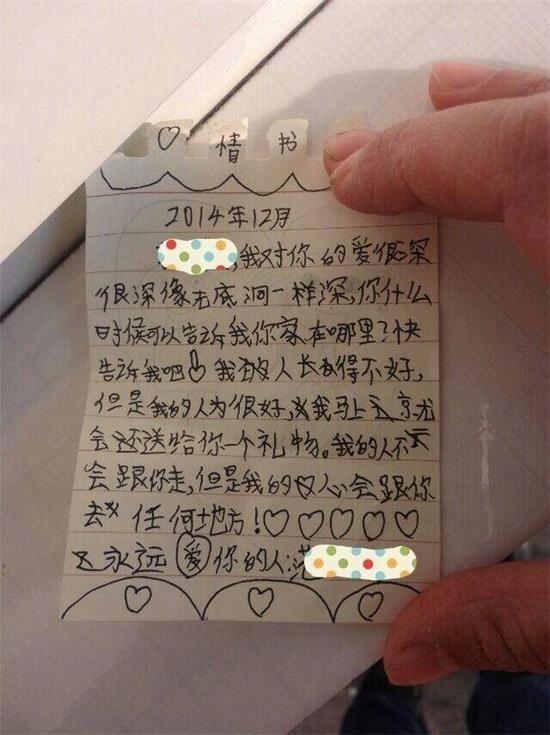 ♡ 情书
2014年12月
,我对你的爱很深
很深像无底洞一样深,你什么
时候可以告诉我你家在哪里?快
告诉我吧 我的人长得不好,
但是我的人为很好,我马上
会还送给你一个礼物。我的人不
会跟你走,但是我的心会跟你
去 任何地方!♡♡♡♡♡
永远爱你的人: